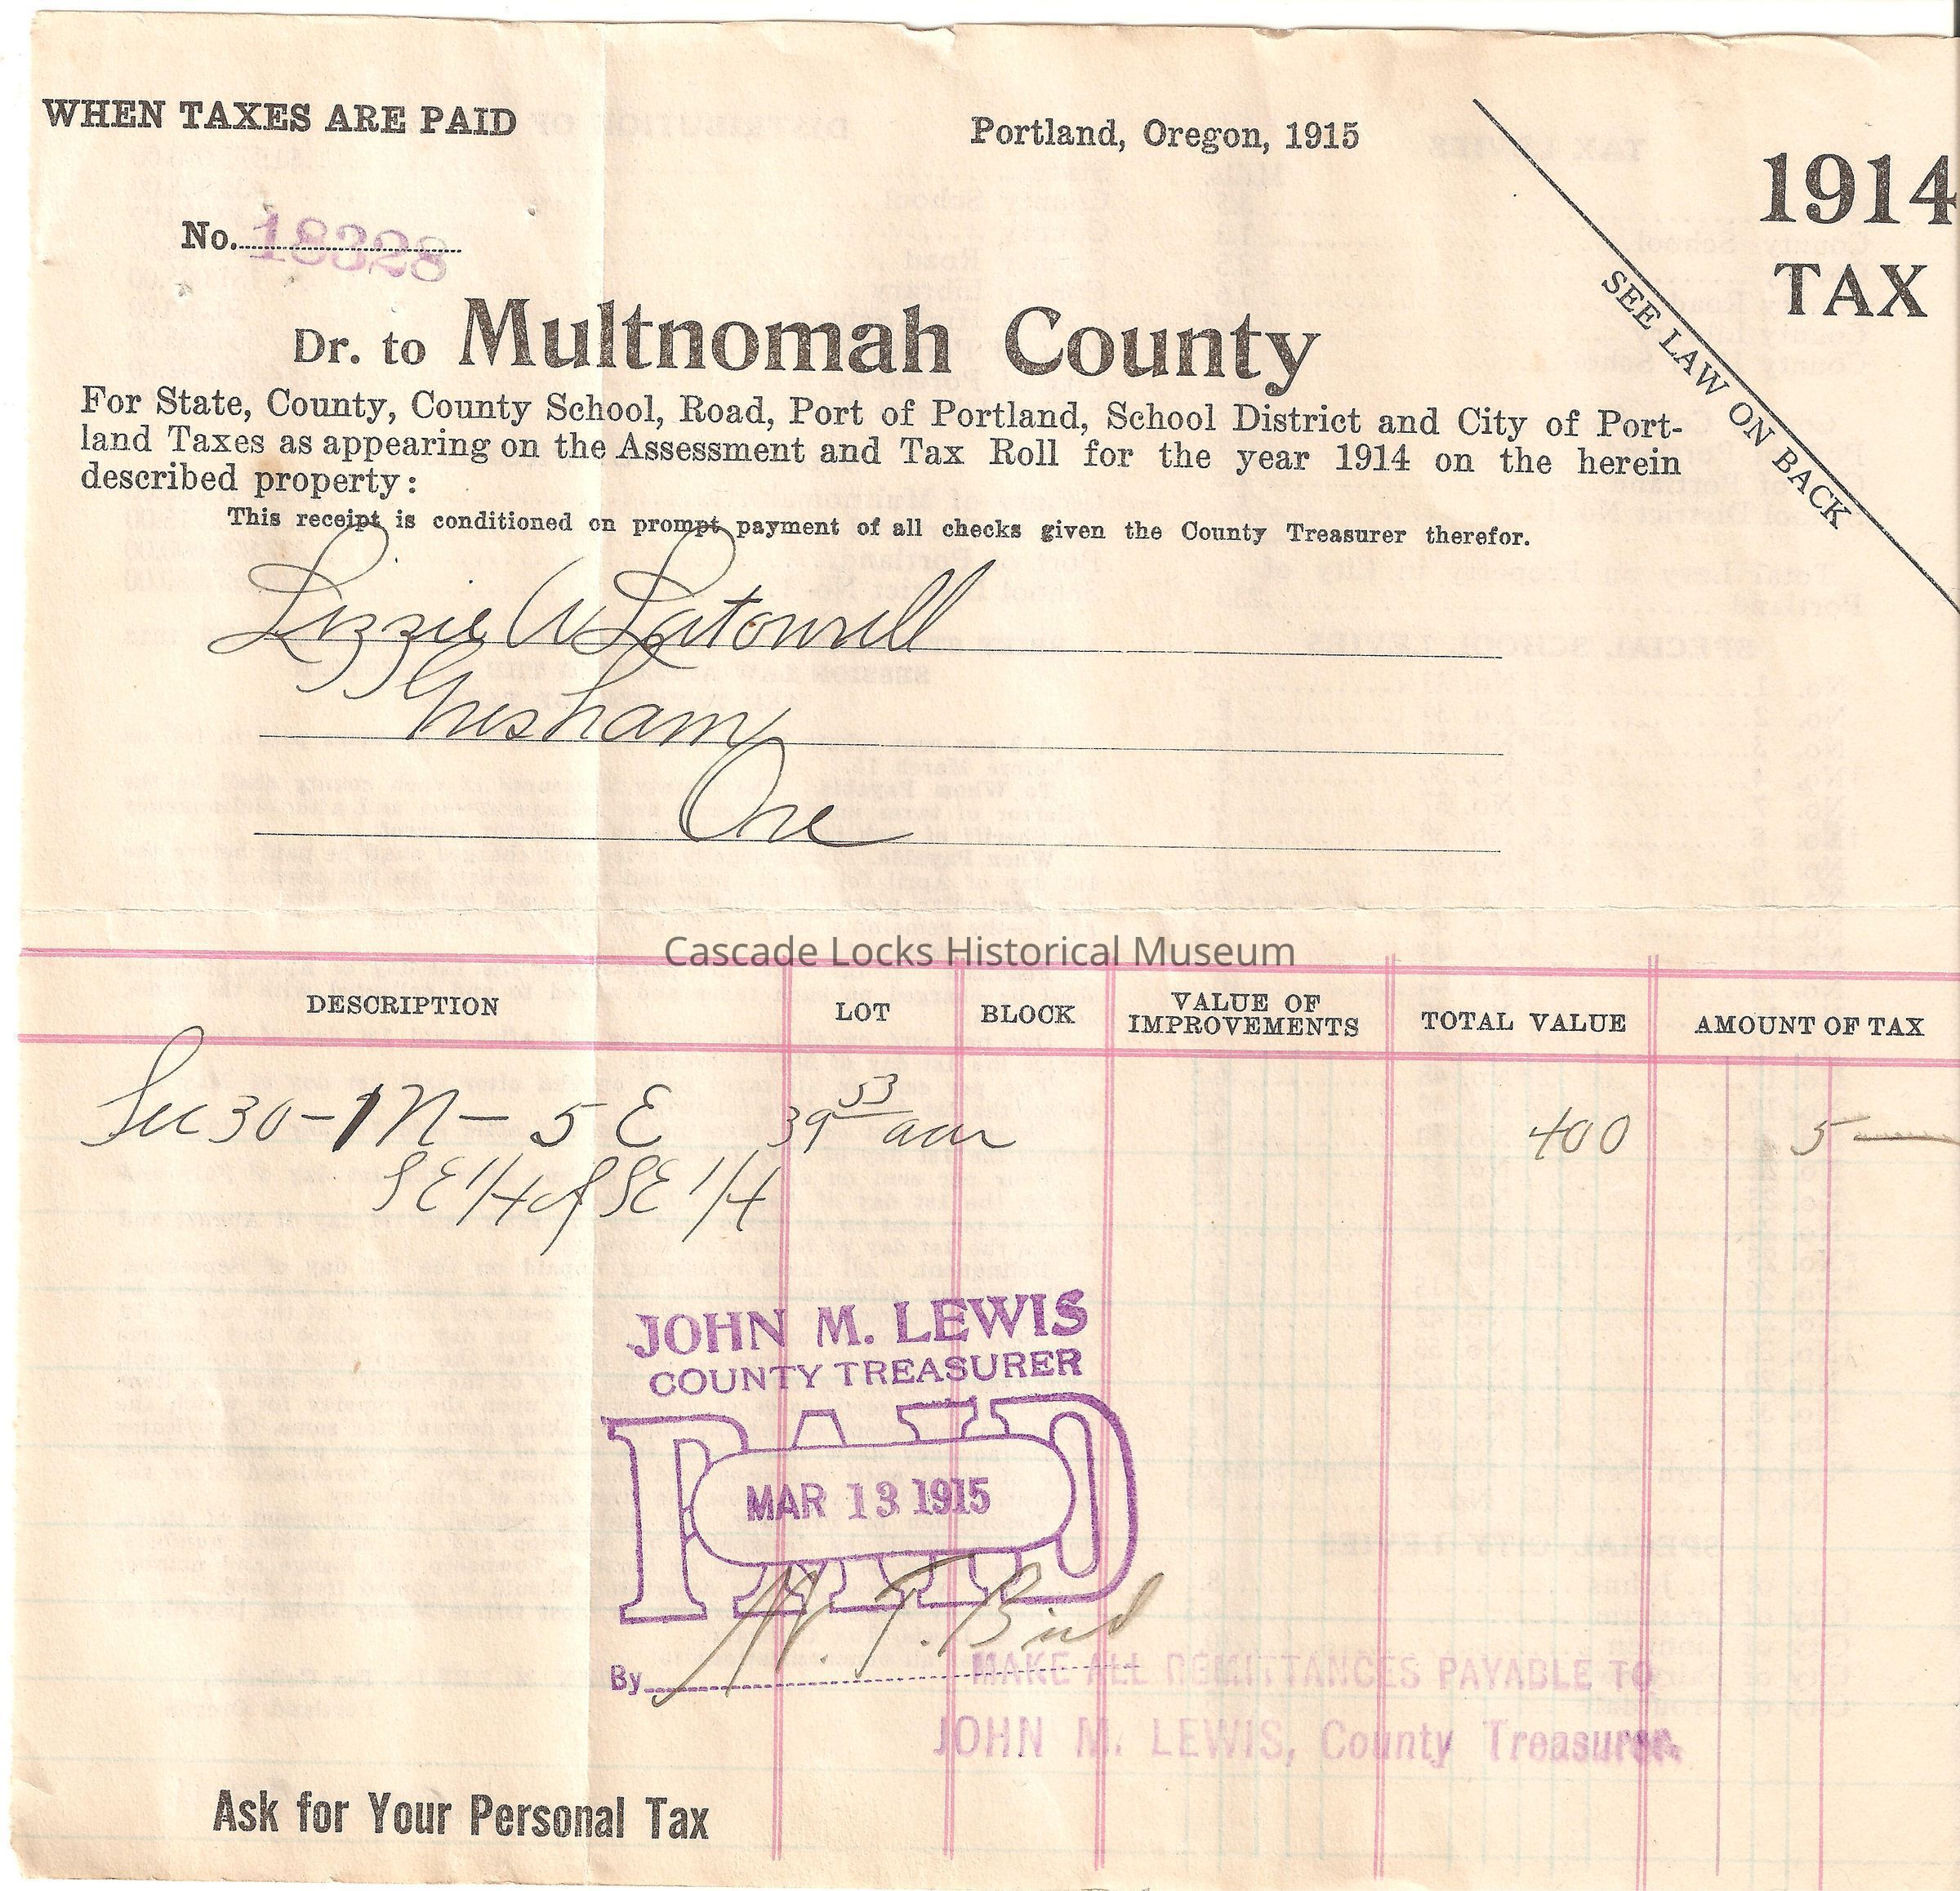 WHEN TAXES ARE PAID
Portland, Oregon, 1915
1914
TAX
SEE LAW ON BACK
No. 18328
Dr. to Multnomah County
For State, County, County School, Road, Port of Portland, School District and City of Port-
land Taxes as appearing on the Assessment and Tax Roll for the year 1914 on the herein
described property:
This receipt is conditioned on prompt payment of all checks given the County Treasurer therefor.
Lizzie W Latourell
Gresham
Ore
Cascade Locks Historical Museum
DESCRIPTION LOT BLOCK VALUE OF IMPROVEMENTS TOTAL VALUE AMOUNT OF TAX
Sec 30-1N-5E 39 53 acr 400 5 —
SE 1/4 of SE 1/4
JOHN M. LEWIS
COUNTY TREASURER
PAID
MAR 13 1915
By T. Bird
MAKE ALL REMITTANCES PAYABLE TO
JOHN M. LEWIS, County Treasurer.
Ask for Your Personal Tax